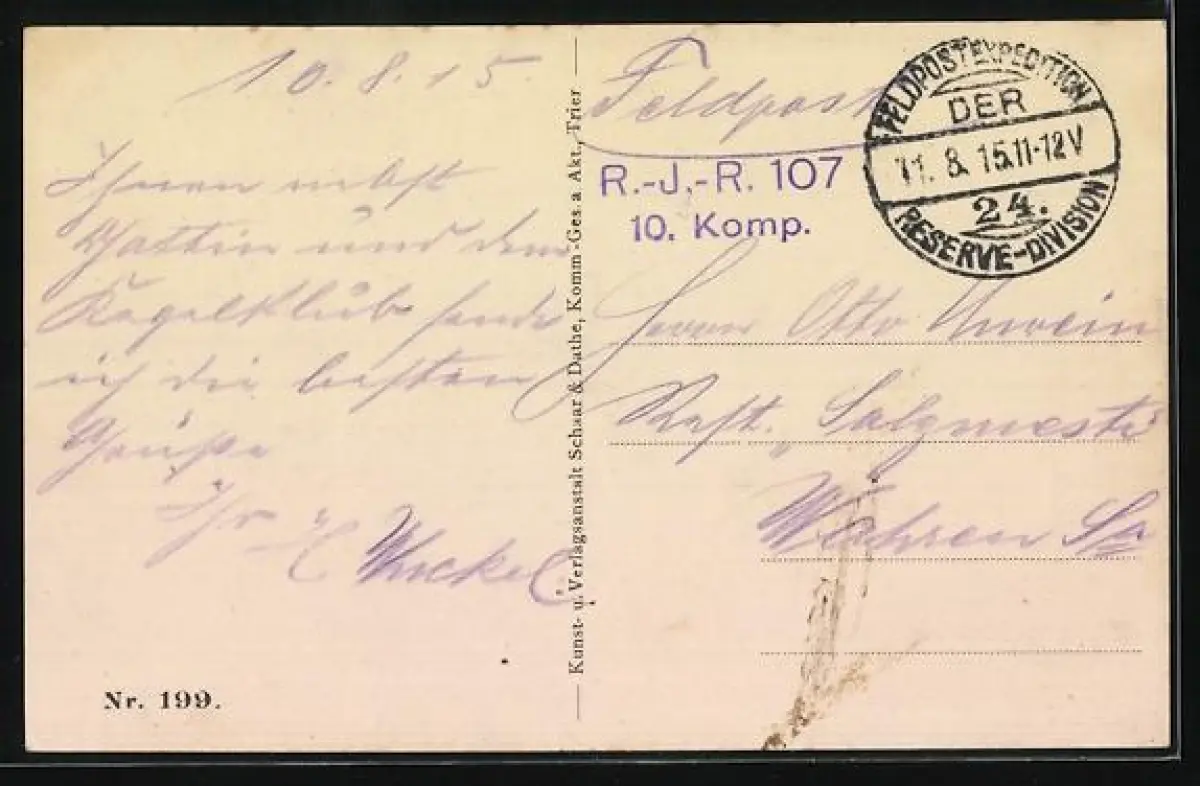 10. 8. 15.
Ihnen nebst
Gattin und dem
Kegelklub sende
ich die besten
Grüße
Ihr E.
Nr. 199.
Kunst- u. Verlagsanstalt Schaar & Dathe, Komm.-Ges. a. Akt., Trier
Feldpost
R.-J.-R. 107
10. Komp.
FELDPOSTEXPEDITION
DER
11. 8. 15.11-12V
24.
RESERVE-DIVISION
Herrn Otto
Rest.
Wahren